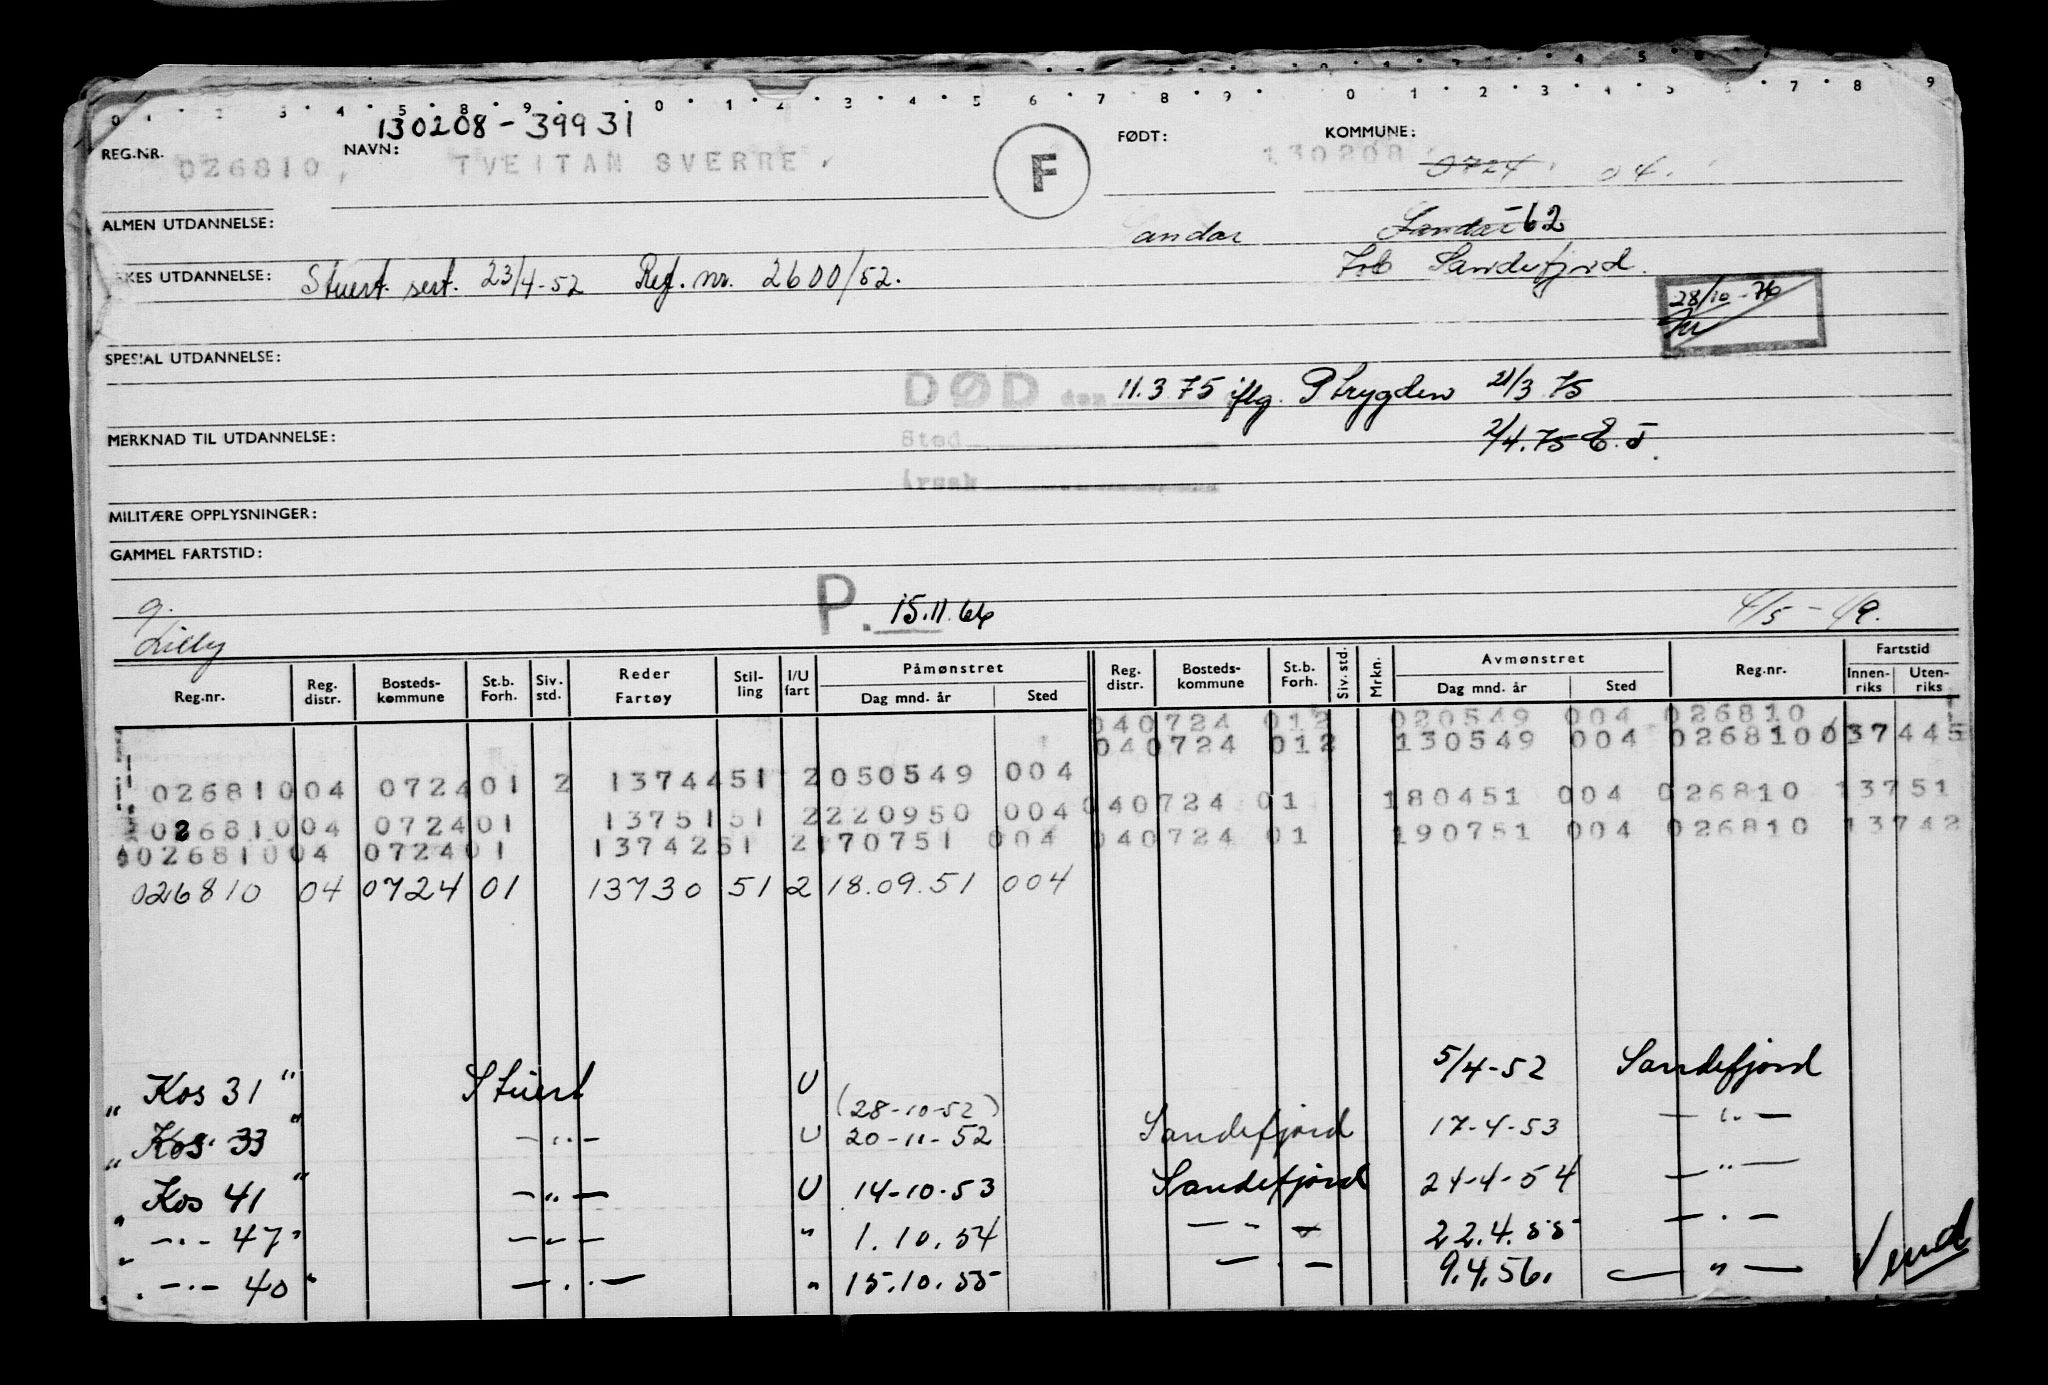 130208-39931
REG.NR. NAVN: FØDT: KOMMUNE:
026810, TVEITAN SVERRE. F 130208 0724. 04.
ALMEN UTDANNELSE: andar Sandar -62
KES UTDANNELSE: Stuert. sert. 23/4-52 Ref. nr. 2600/52. Sandefjord.
28/10-76
SPESIAL UTDANNELSE:
DØD den 11.3 75 iflg. P trygden 21/3 75
MERKNAD TIL UTDANNELSE: Sted 2/4.75 E.J.
Årsak
MILITÆRE OPPLYSNINGER:
GAMMEL FARTSTID:
g. P. 15.11.66 4/5-49.
Lilly
Reg.nr. Reg. distr. Bosteds-kommune St.b. Forh. Siv. std. Reder Fartøy Stil-ling I/U fart Påmønstret Dag mnd. år Sted Reg. distr. Bosteds-kommune St.b. Forh. Siv. std. Mrkn. Avmønstret Dag mnd. år Sted Reg.nr. Fartstid Innen-riks Uten-riks
040724 012 020549 004 026810
040724 012 130549 004 0268100 37445
02681004 072401 2 1374451 2050549 004
040724 01 180451 004 026810 13751
02681004 072401 1375151 2220950 004
040724 01 190751 004 026810 13742
02681004 072401 1374251 2170751 004
026810 04 0724 01 13730 51 2 18.09.51 004
" Kos 31 " Stuert U 5/4-52 Sandefjord
(28-10-52)
" Kos. 33 " -"- U 20-11-52 Sandefjord 17-4-53 -"-
" Kos 41 " -"- U 14-10-53 Sandefjord 24-4-54 -"-
" -"- 47 " -"- " 1.10.54 -"- 22.4.55 -"-
" -"- 40 " -"- " 15.10.55 -"- 9.4.56. -"-
Vend